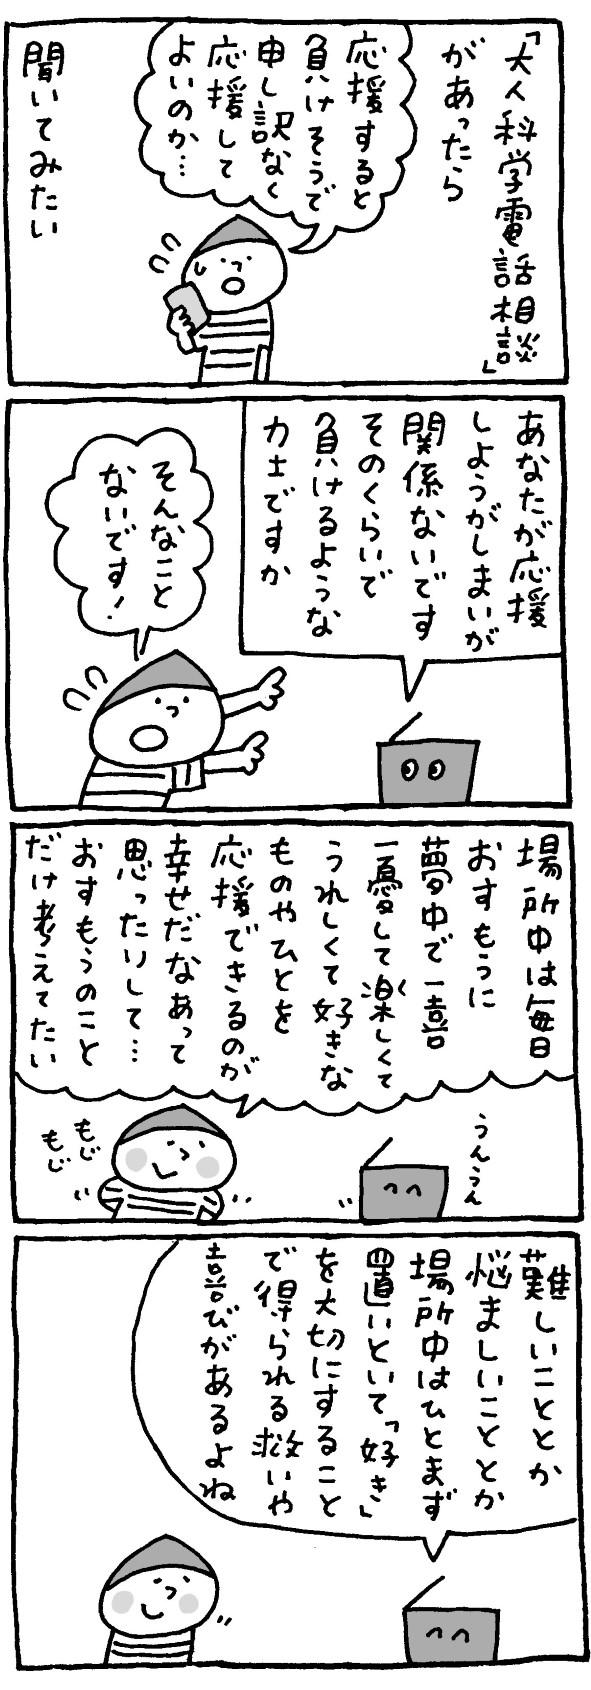 「大人科学電話相談」
があったら
応援すると
負けそうで
申し訳なく
応援して
よいのか…
聞いてみたい
あなたが応援
しようがしまいが
関係ないです
そのくらいで
負けるような
力士ですか
そんなこと
ないです！
場所中は毎日
おすもうに
夢中で一喜
一憂して楽しくて
うれしくて好きな
ものやひとを
応援できるのが
幸せだなあって
思ったりして…
おすもうのこと
だけ考えてたい
もじ
もじ
うんうん
難しいこととか
悩ましいこととか
場所中はひとまず
置いといて「好き」
を大切にすること
で得られる救いや
喜びがあるよね